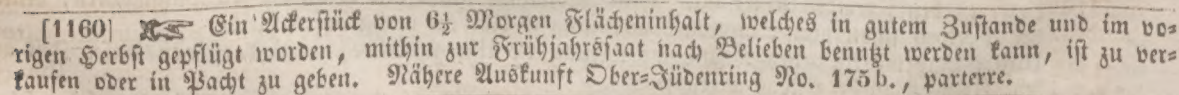 [1160] ☞ Ein Ackerstück von 6½ Morgen Flächeninhalt, welches in gutem Zustande und im vo-
rigen Herbst gepflügt worden, mithin zur Frühjahrssaat nach Belieben benutzt werden kann, ist zu ver-
kaufen oder in Pacht zu geben. Nähere Auskunft Ober-Jüdenring No. 175b., parterre.